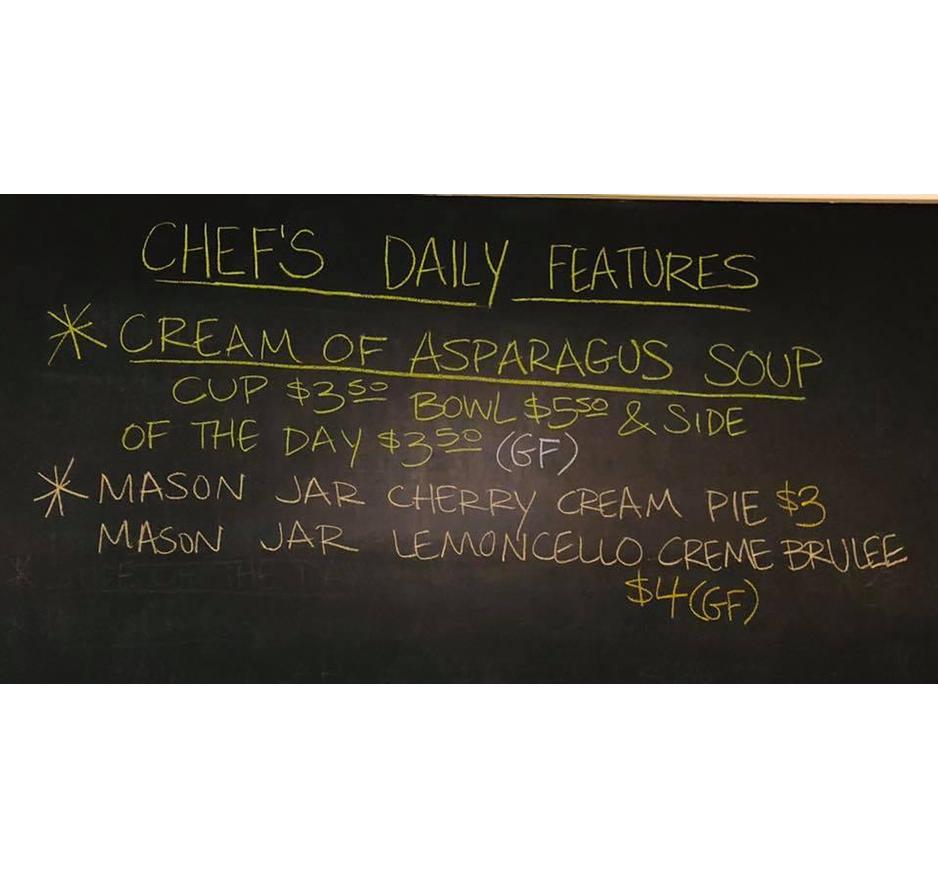 CHEF'S DAILY FEATURES
* CREAM OF ASPARAGUS SOUP
CUP $3.50 BOWL $5.50 & SIDE
OF THE DAY $3.50 (GF)
* MASON JAR CHERRY CREAM PIE $3
MASON JAR LEMONCELLO CREME BRULEE
$4 (GF)